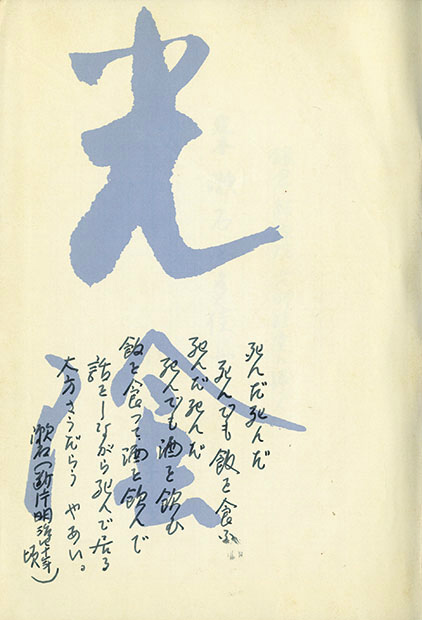 光陰
死んだ死んだ
死んでも飯を食ふ
死んだ死んだ
死んでも酒を飲む
飯を食つて酒を飲んで
話をしながら死んで居る
大方さうだらう やあい。
漱石(断片 明治 年頃)